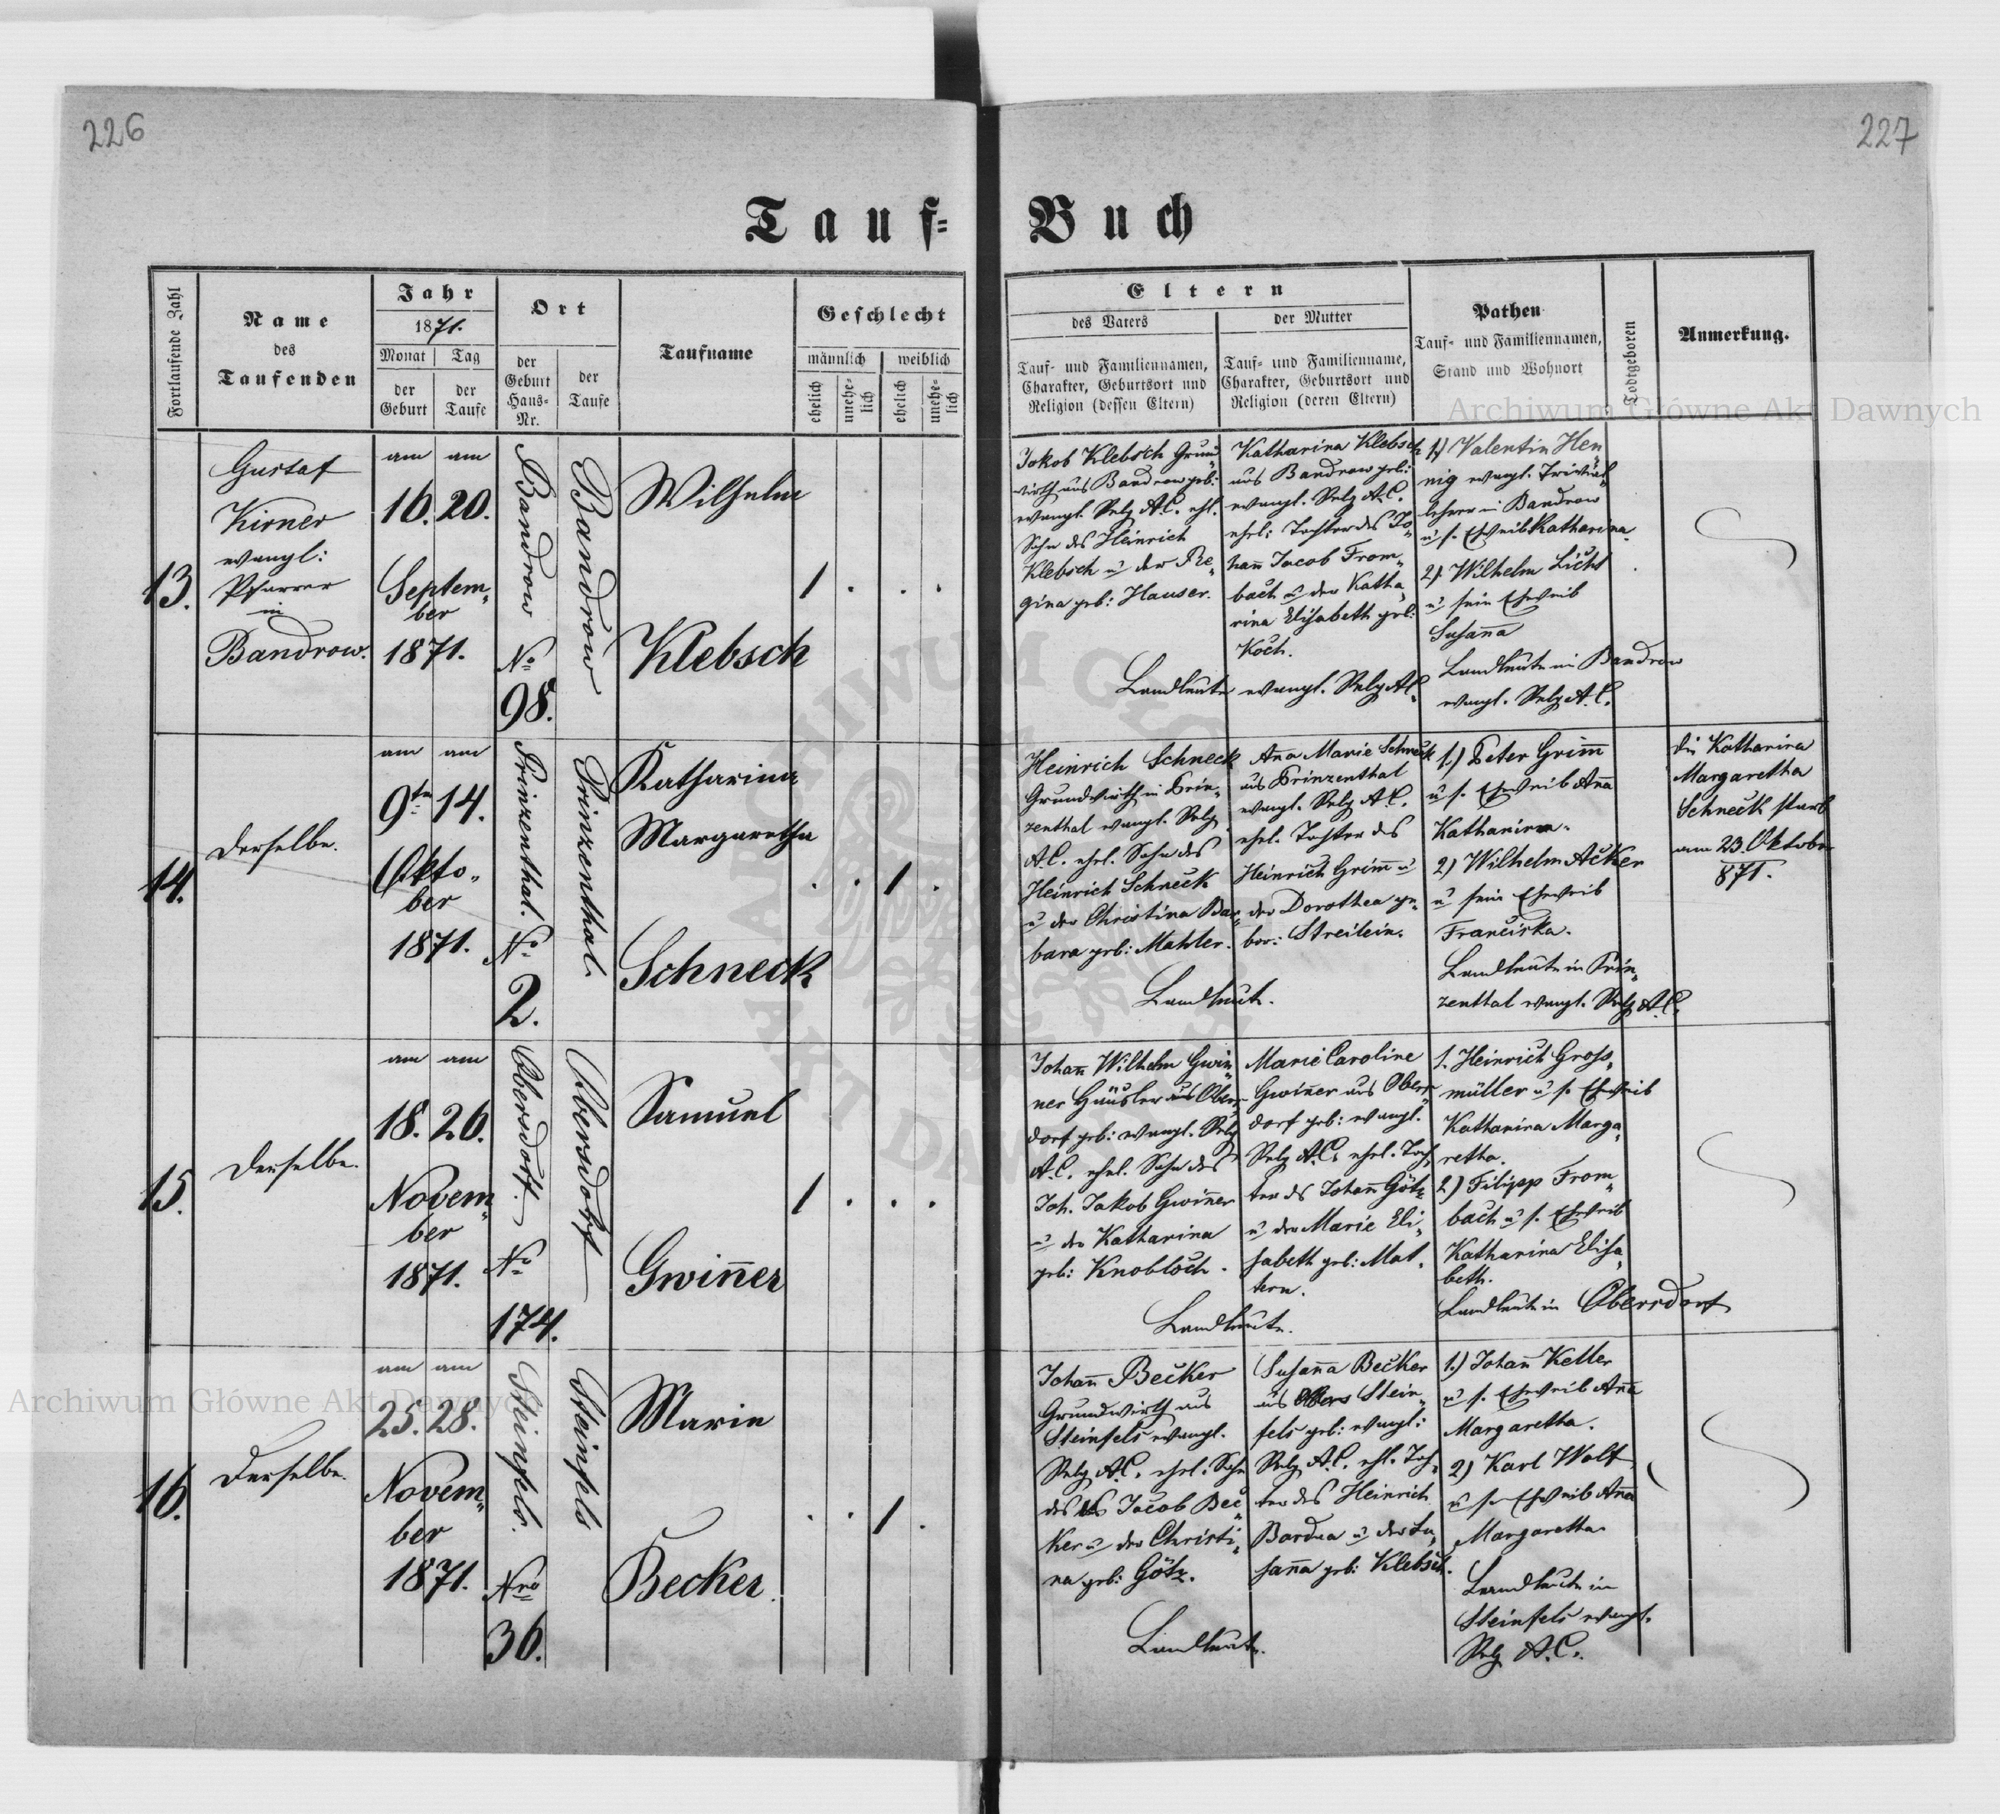 226
227
Tauf=
Buch
Fortlaufende Zahl
Name
des
Taufenden
Jahr
1871.
Monat
Tag
der
Geburt
der
Taufe
Ort
der
Geburt
Haus=
Nr.
der
Taufe
Taufname
Geschlecht
männlich
weiblich
ehelich
unehe=
lich
ehelich
unehe=
lich
Eltern
des Vaters
der Mutter
Tauf= und Familiennamen,
Charakter, Geburtsort und
Religion (dessen Eltern)
Tauf= und Familienname,
Charakter, Geburtsort und
Religion (deren Eltern)
Pathen
Tauf= und Familiennamen,
Stand und Wohnort
Todtgeboren
Anmerkung.
Archiwum Główne Akt Dawnych
13.
Gustaf
Kirner
evangl:
Pfarrer
in
Bandrow.
am am
16. 20.
Septem„
ber
1871.
Bandrow
No
98.
Bandrow
Wilhelm
Klebsch
1 . . .
Jakob Klebsch Grund„
wirth aus Bandrow geb:
evangl. Relg A.C. ehl.
Sohn des Heinrich
Klebsch u der Re„
gina geb: Hauser.
Katharina Klebsch
aus Bandrow geb:
evangl. Relg A.C.
ehel: Tochter des Jo„
hann Jacob From„
bach u der Katha„
rina Elisabeth geb:
Koch.
Landleute evangl. Relg A.C.
1) Valentin Hen„
nig evangl. Trivial„
lehrer in Bandrow
u s. Eheweib Katharina.
2) Wilhelm Licht
u sein Eheweib
Susanna
Landleute in Bandrow
evangl. Relg A.C.
14.
derselbe.
am am
9tn 14.
Okto„
ber
1871.
Prinzenthal.
No
2.
Prinzenthal.
Katharina
Margaretha
Schneck
. . 1 .
Heinrich Schneck
Grundwirth in Prin„
zenthal evangl. Relg
A.C. ehel. Sohn des
Heinrich Schneck
u der Christina Bar„
bara geb: Mahler.
Ana Marie Schneck
aus Prinzenthal
evangl. Relg A.C.
ehel. Tochter des
Heinrich Grim̅ u
der Dorothea ge„
bor: Streilein.
Landleute.
1.) Peter Grim̅
u s. Eheweib Ana̅
Katharina.
2) Wilhelm Acker
u sein Eheweib
Franciska.
Landleute in Prin„
zenthal evangl. Relg A.C.
die Katharina
Margaretha
Schneck starb
am 23. Oktober
871.
15.
derselbe.
am am
18. 26.
Novem„
ber
1871.
Obersdorf.
No
174.
Obersdorf
Samuel
Gwin̅er
1 . . .
Johan̅ Wilhelm Gwin̅„
ner Häusler aus Obers„
dorf geb: evangl. Relg
A.C. ehel. Sohn des
Joh. Jakob Gwin̅er
u der Katharina
geb: Knobloch.
Marie Caroline
Gwin̅er aus Obers„
dorf geb: evangl.
Relg A.C. ehel. Toch„
ter des Johan̅ Götz
u der Marie Eli„
sabeth geb: Mat„
tern.
Landleute.
1. Heinrich Gross„
müller u s. Eheweib
Katharina Marga„
retha.
2) Filipp From„
bach u s. Eheweib
Katharina Elisa„
beth.
Landleute in Obersdorf
16.
derselbe.
am am
25. 28.
Novem„
ber
1871.
Steinfels.
Nro
36.
Steinfels
Marie
Becker
. . 1 .
Johan̅ Becker
Grundwirth aus
Steinfels evangl.
Relg A.C. ehel. Sohn
des Jacob Bec„
ker u der Christi„
na geb: Götz.
Susan̅a Becker
aus Stein„
fels geb: evangl:
Relg A.C. ehl. Toch„
ter des Heinrich
u der Su„
san̅a geb: Klebsch.
Landleute.
1.) Johan̅ Keller
u s. Eheweib An̅a
Margaretha.
2) Karl Wolf
u s. Eheweib An̅a
Margaretha
Landleute in
Steinfels evangl.
Relg A.C.
Archiwum Główne Akt Dawnych
ARCHIWUM GŁÓWNE
AKT DAWNYCH